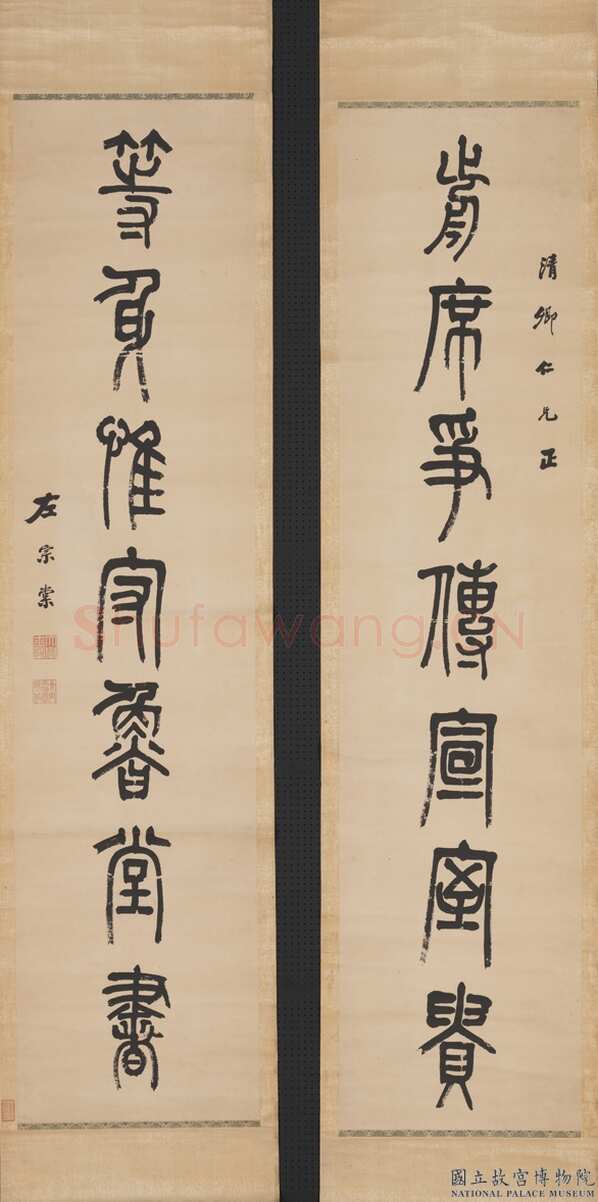 清卿仁兄正
前席爭傳宣室貴
等身惟守魯堂書
左宗棠
Shufawang.CN
國立故宮博物院
NATIONAL PALACE MUSEUM